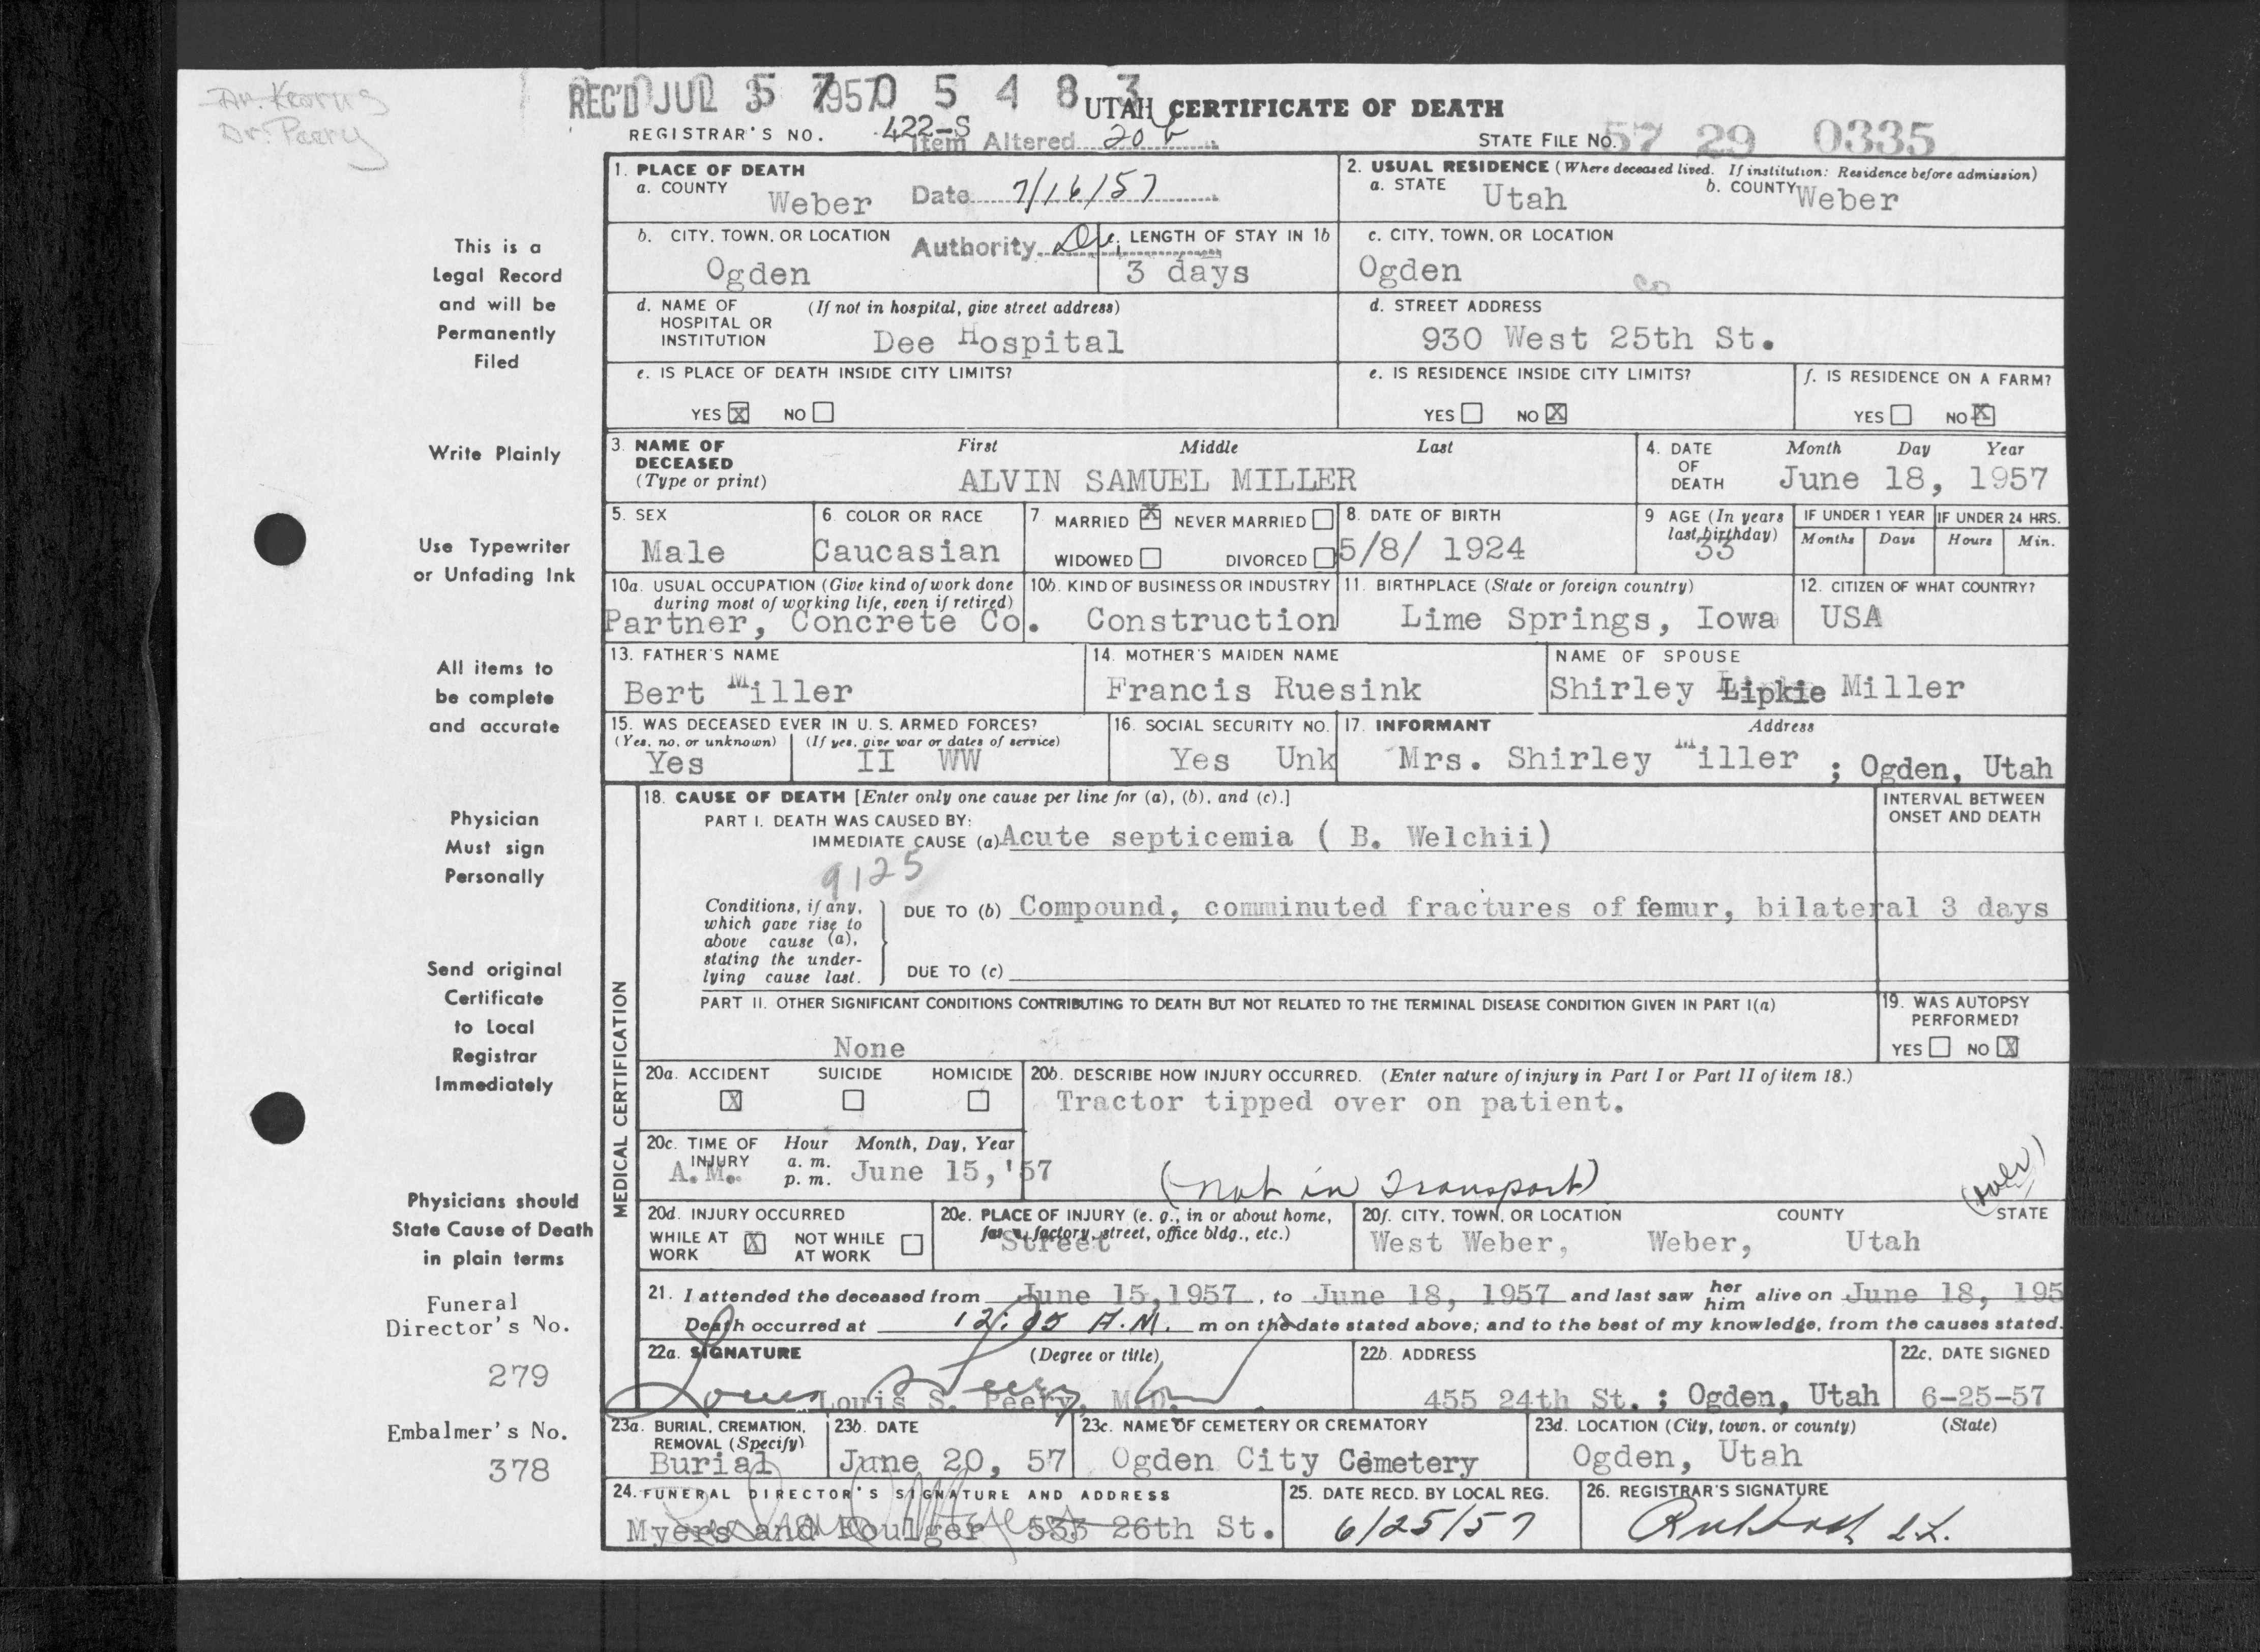 Dr. Kearns
Dr. Peery
REC'D JUL 3 1957
57 0 5 4 8 3
UTAH CERTIFICATE OF DEATH
REGISTRAR'S NO. 422-S
Item Altered 20b
STATE FILE NO. 57 29 0335
1. PLACE OF DEATH
a. COUNTY Weber
Date 7/16/57
2. USUAL RESIDENCE (Where deceased lived. If institution: Residence before admission)
a. STATE Utah b. COUNTY Weber
b. CITY, TOWN, OR LOCATION Ogden
Authority Dr.
LENGTH OF STAY IN 1b 3 days
c. CITY, TOWN, OR LOCATION
Ogden co
d. NAME OF HOSPITAL OR INSTITUTION (If not in hospital, give street address)
Dee Hospital
d. STREET ADDRESS
930 West 25th St.
e. IS PLACE OF DEATH INSIDE CITY LIMITS?
YES X NO
e. IS RESIDENCE INSIDE CITY LIMITS?
YES NO X
f. IS RESIDENCE ON A FARM?
YES NO X
3. NAME OF DECEASED (Type or print) First Middle Last
ALVIN SAMUEL MILLER
4. DATE OF DEATH Month Day Year
June 18, 1957
5. SEX
Male
6. COLOR OR RACE
Caucasian
7. MARRIED X NEVER MARRIED
WIDOWED DIVORCED
8. DATE OF BIRTH
5/8/ 1924
9 AGE (In years last birthday)
33
IF UNDER 1 YEAR
Months Days
IF UNDER 24 HRS.
Hours Min.
10a. USUAL OCCUPATION (Give kind of work done during most of working life, even if retired)
Partner, Concrete Co.
10b. KIND OF BUSINESS OR INDUSTRY
Construction
11. BIRTHPLACE (State or foreign country)
Lime Springs, Iowa
12. CITIZEN OF WHAT COUNTRY?
USA
13. FATHER'S NAME
Bert Miller
14. MOTHER'S MAIDEN NAME
Francis Ruesink
NAME OF SPOUSE
Shirley Lipkie Miller
15. WAS DECEASED EVER IN U. S. ARMED FORCES?
(Yes, no, or unknown) (If yes, give war or dates of service)
Yes II WW
16. SOCIAL SECURITY NO.
Yes Unk
17. INFORMANT Address
Mrs. Shirley Miller ; Ogden, Utah
MEDICAL CERTIFICATION
18. CAUSE OF DEATH [Enter only one cause per line for (a), (b), and (c).]
INTERVAL BETWEEN ONSET AND DEATH
PART I. DEATH WAS CAUSED BY:
IMMEDIATE CAUSE (a) Acute septicemia ( B. Welchii)
9125
Conditions, if any, which gave rise to above cause (a), stating the underlying cause last.
DUE TO (b) Compound, comminuted fractures of femur, bilateral 3 days
DUE TO (c)
PART II. OTHER SIGNIFICANT CONDITIONS CONTRIBUTING TO DEATH BUT NOT RELATED TO THE TERMINAL DISEASE CONDITION GIVEN IN PART I(a)
None
19. WAS AUTOPSY PERFORMED?
YES NO X
20a. ACCIDENT SUICIDE HOMICIDE
X
20b. DESCRIBE HOW INJURY OCCURRED. (Enter nature of injury in Part I or Part II of item 18.)
Tractor tipped over on patient.
20c. TIME OF INJURY Hour Month, Day, Year
a. m. p. m.
A.M. June 15,'57
(not in transport)
(over)
20d. INJURY OCCURRED
WHILE AT WORK X NOT WHILE AT WORK
20e. PLACE OF INJURY (e. g., in or about home, farm, factory, street, office bldg., etc.)
Street
20f. CITY, TOWN, OR LOCATION COUNTY STATE
West Weber, Weber, Utah
21. I attended the deceased from June 15, 1957, to June 18, 1957 and last saw her him alive on June 18, 195
Death occurred at 12:05 A.M. m on the date stated above; and to the best of my knowledge, from the causes stated.
22a. SIGNATURE (Degree or title)
Louis S. Peery
Louis S. Peery, M.D.
22b. ADDRESS
455 24th St. ; Ogden, Utah
22c. DATE SIGNED
6-25-57
23a. BURIAL, CREMATION, REMOVAL (Specify)
Burial
23b. DATE
June 20, 57
23c. NAME OF CEMETERY OR CREMATORY
Ogden City Cemetery
23d. LOCATION (City, town, or county) (State)
Ogden, Utah
24. FUNERAL DIRECTOR'S SIGNATURE AND ADDRESS
Myers and Foulger 533 26th St.
25. DATE RECD. BY LOCAL REG.
6/25/57
26. REGISTRAR'S SIGNATURE
This is a
Legal Record
and will be
Permanently
Filed
Write Plainly
Use Typewriter
or Unfading Ink
All items to
be complete
and accurate
Physician
Must sign
Personally
Send original
Certificate
to Local
Registrar
Immediately
Physicians should
State Cause of Death
in plain terms
Funeral
Director's No.
279
Embalmer's No.
378